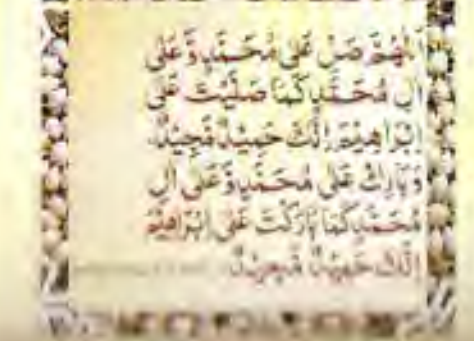 اَللّٰهُمَّ صَلِّ عَلٰى مُحَمَّدٍ وَّعَلٰى
اٰلِ مُحَمَّدٍ كَمَا صَلَّيْتَ عَلٰى
اِبْرَاهِيْمَ اِنَّكَ حَمِيْدٌ مَّجِيْدٌ
وَبَارِكْ عَلٰى مُحَمَّدٍ وَّعَلٰى اٰلِ
مُحَمَّدٍ كَمَا بَارَكْتَ عَلٰى اِبْرَاهِيْمَ
اِنَّكَ حَمِيْدٌ مَّجِيْدٌ